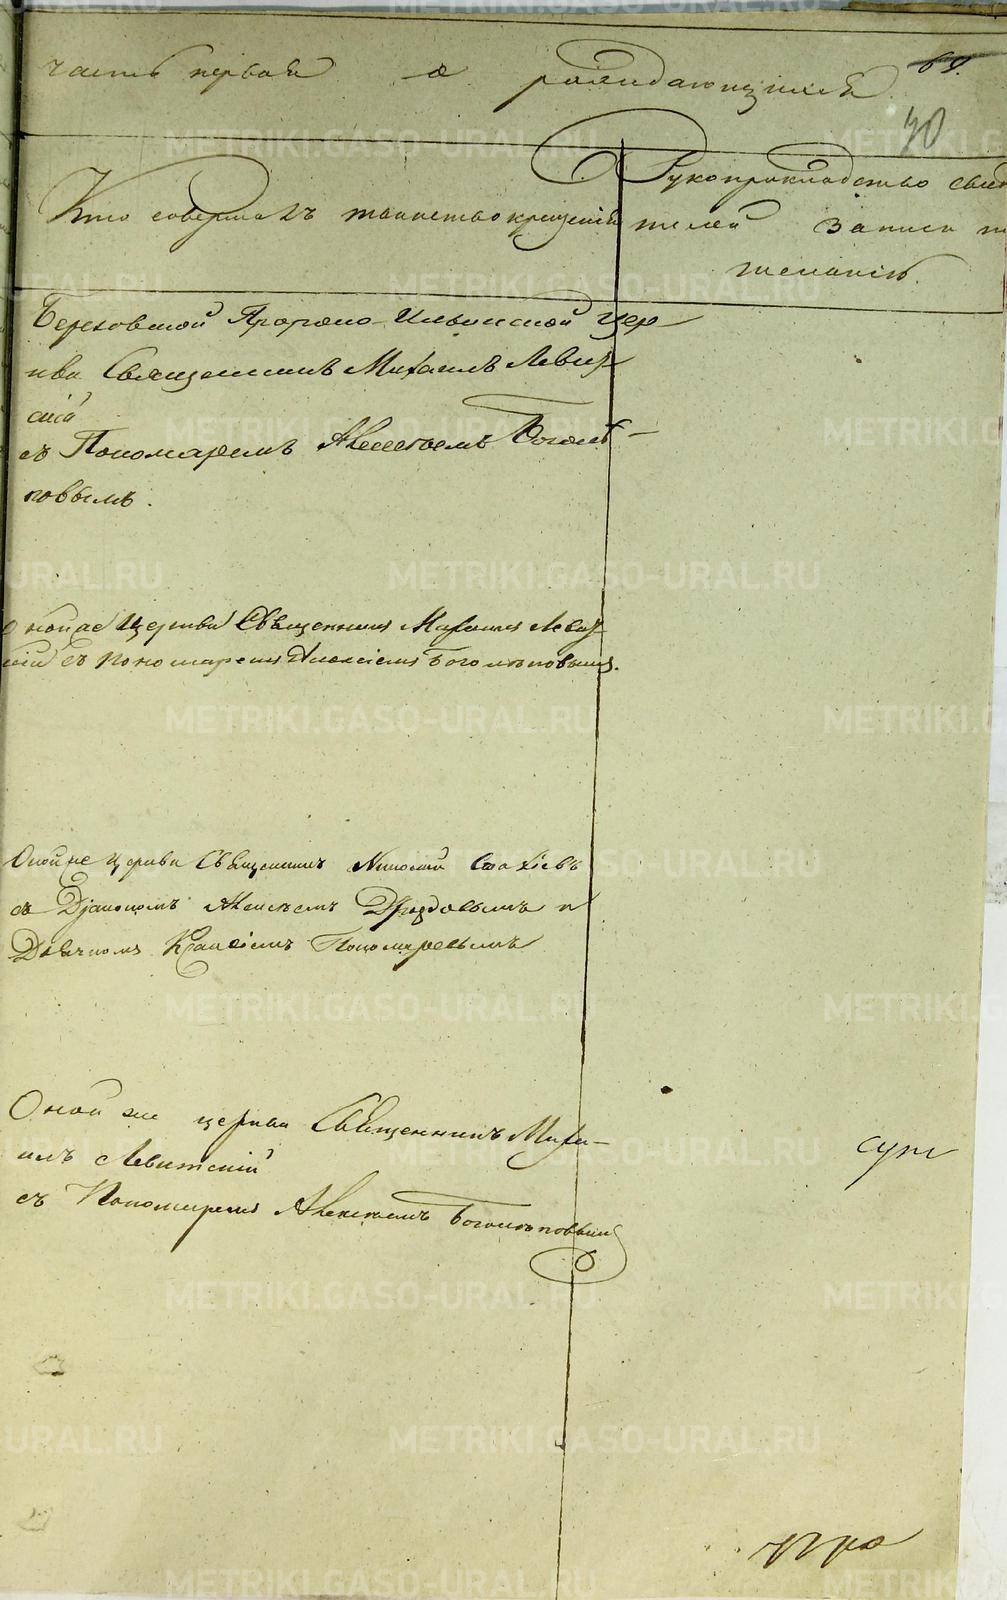 часть первая о раждающихся
69.
70
Кто совершалъ таинство крещенія
Рукоприкладство свидѣ
телей записи
желанію.
Березовской Пророко-Ильинской Цер-
кви Священникъ Михаилъ Левит
скій
съ Пономаремъ Алексѣемъ Боголѣ-
повымъ.
Оной же Церкви Священникъ Михаилъ Левит
скій съ Пономаремъ Алексіемъ Боголѣповымъ.
Оной же Церкви Священникъ Николай Стахіевъ
съ Діакономъ Алексѣемъ Дроздовымъ и
Дьячкомъ Кановомъ Пономаревымъ
Оной же церкви Священникъ Миха-
илъ Левитскій
съ Пономаремъ Алексѣемъ Боголѣповымъ
METRIKI.GASO-URAL.RU